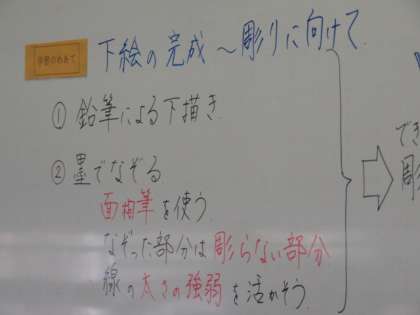 学習のめあて
下絵の完成~彫りに向けて
① 鉛筆による下描き
② 墨でなぞる
面相筆を使う
なぞった部分は彫らない部分
線の太さの強弱を活かそう
でき
彫